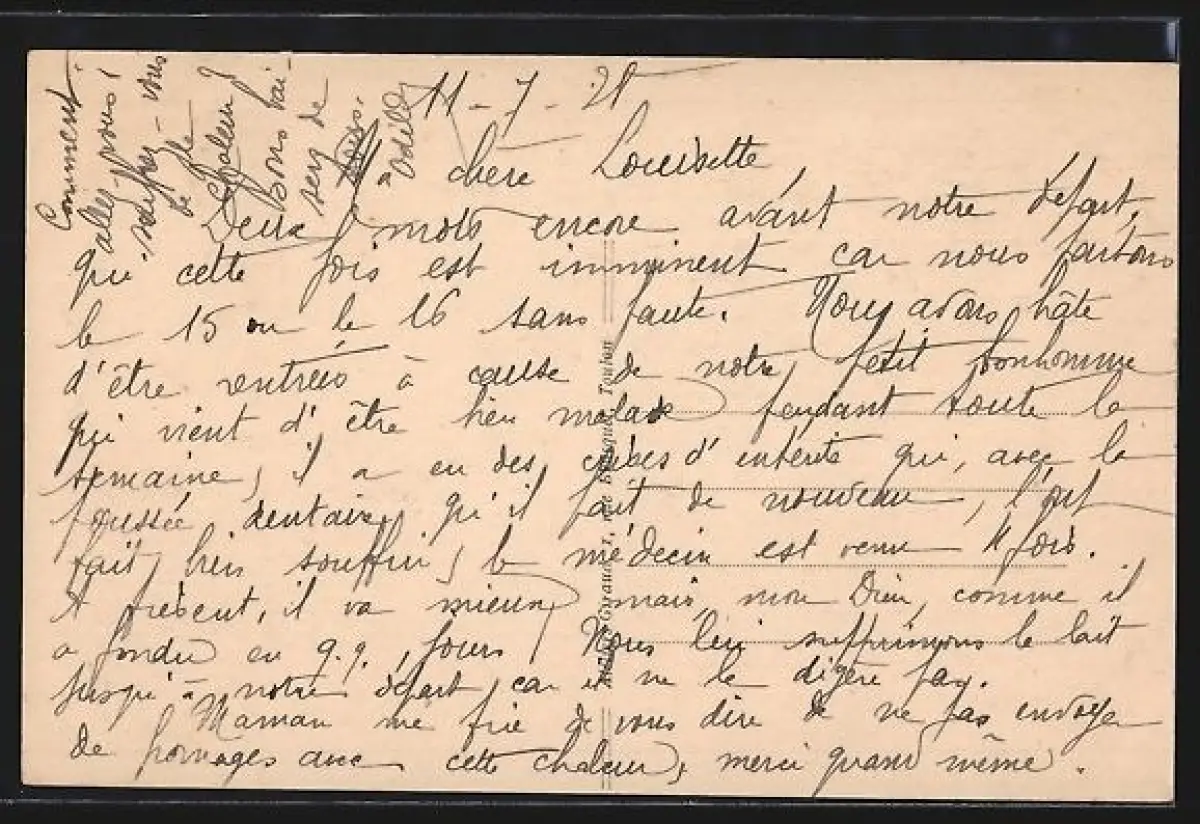 11-7-21
Ma chère Louisette,
Deux mots encore avant notre départ,
que cette fois est imminent car nous partons
le 15 ou le 16 sans faute. Nous avons hâte
d'être rentrées à cause de notre petit bonhomme
qui vient d'être bien malade pendant toute la
semaine, il a eu des crises d'entérite qui, avec la
poussée dentaire qu'il fait de nouveau, l'ont
fait bien souffrir, le médecin est venu 4 fois.
A présent, il va mieux, mais, mon Dieu, comme il
a fondu en q.q. jours! Nous lui supprimons le lait
jusqu'à notre départ, car il ne le digère pas.
Maman me prie de vous dire de ne pas envoyer
de fromages avec cette chaleur, merci quand même.
Comment
allez-vous!
souffrez-vous
de la
chaleur?
Bons bai-
sers de
nous.
Odile
Toulon